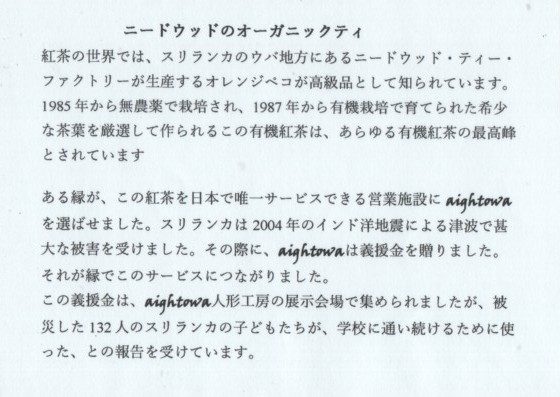 ニードウッドのオーガニックティ
紅茶の世界では、スリランカのウバ地方にあるニードウッド・ティー・
ファクトリーが生産するオレンジペコが高級品として知られています。
1985年から無農薬で栽培され、1987年から有機栽培で育てられた希少
な茶葉を厳選して作られるこの有機紅茶は、あらゆる有機紅茶の最高峰
とされています
ある縁が、この紅茶を日本で唯一サービスできる営業施設に aightowa
を選ばせました。スリランカは2004年のインド洋地震による津波で甚
大な被害を受けました。その際に、aightowaは義援金を贈りました。
それが縁でこのサービスにつながりました。
この義援金は、aightowa人形工房の展示会場で集められましたが、被
災した132人のスリランカの子どもたちが、学校に通い続けるために使
った、との報告を受けています。